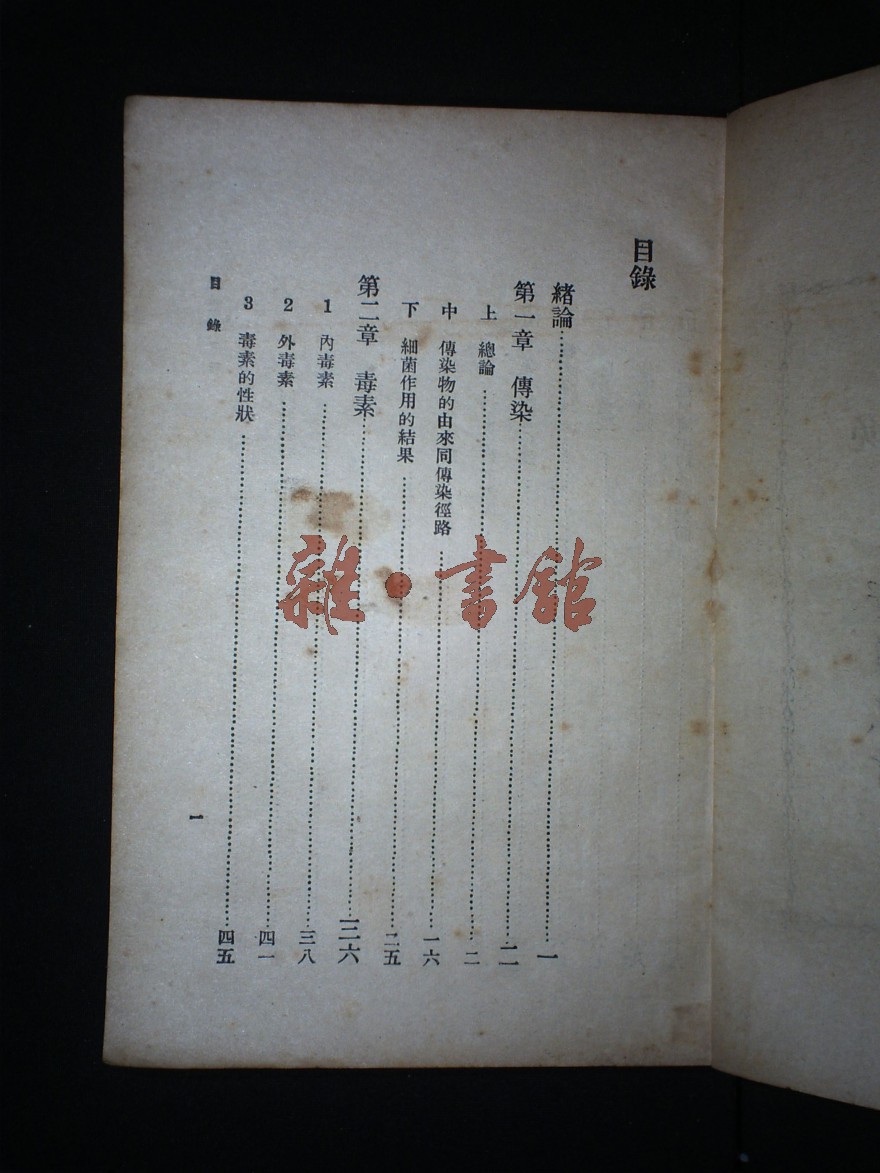 目錄
緒論……一
第一章 傳染……二
上 總論……二
中 傳染物的由來同傳染徑路……一六
下 細菌作用的結果……二五
第二章 毒素……三六
1 內毒素……三八
2 外毒素……四一
3 毒素的性狀……四五
目錄
一
雜·書館